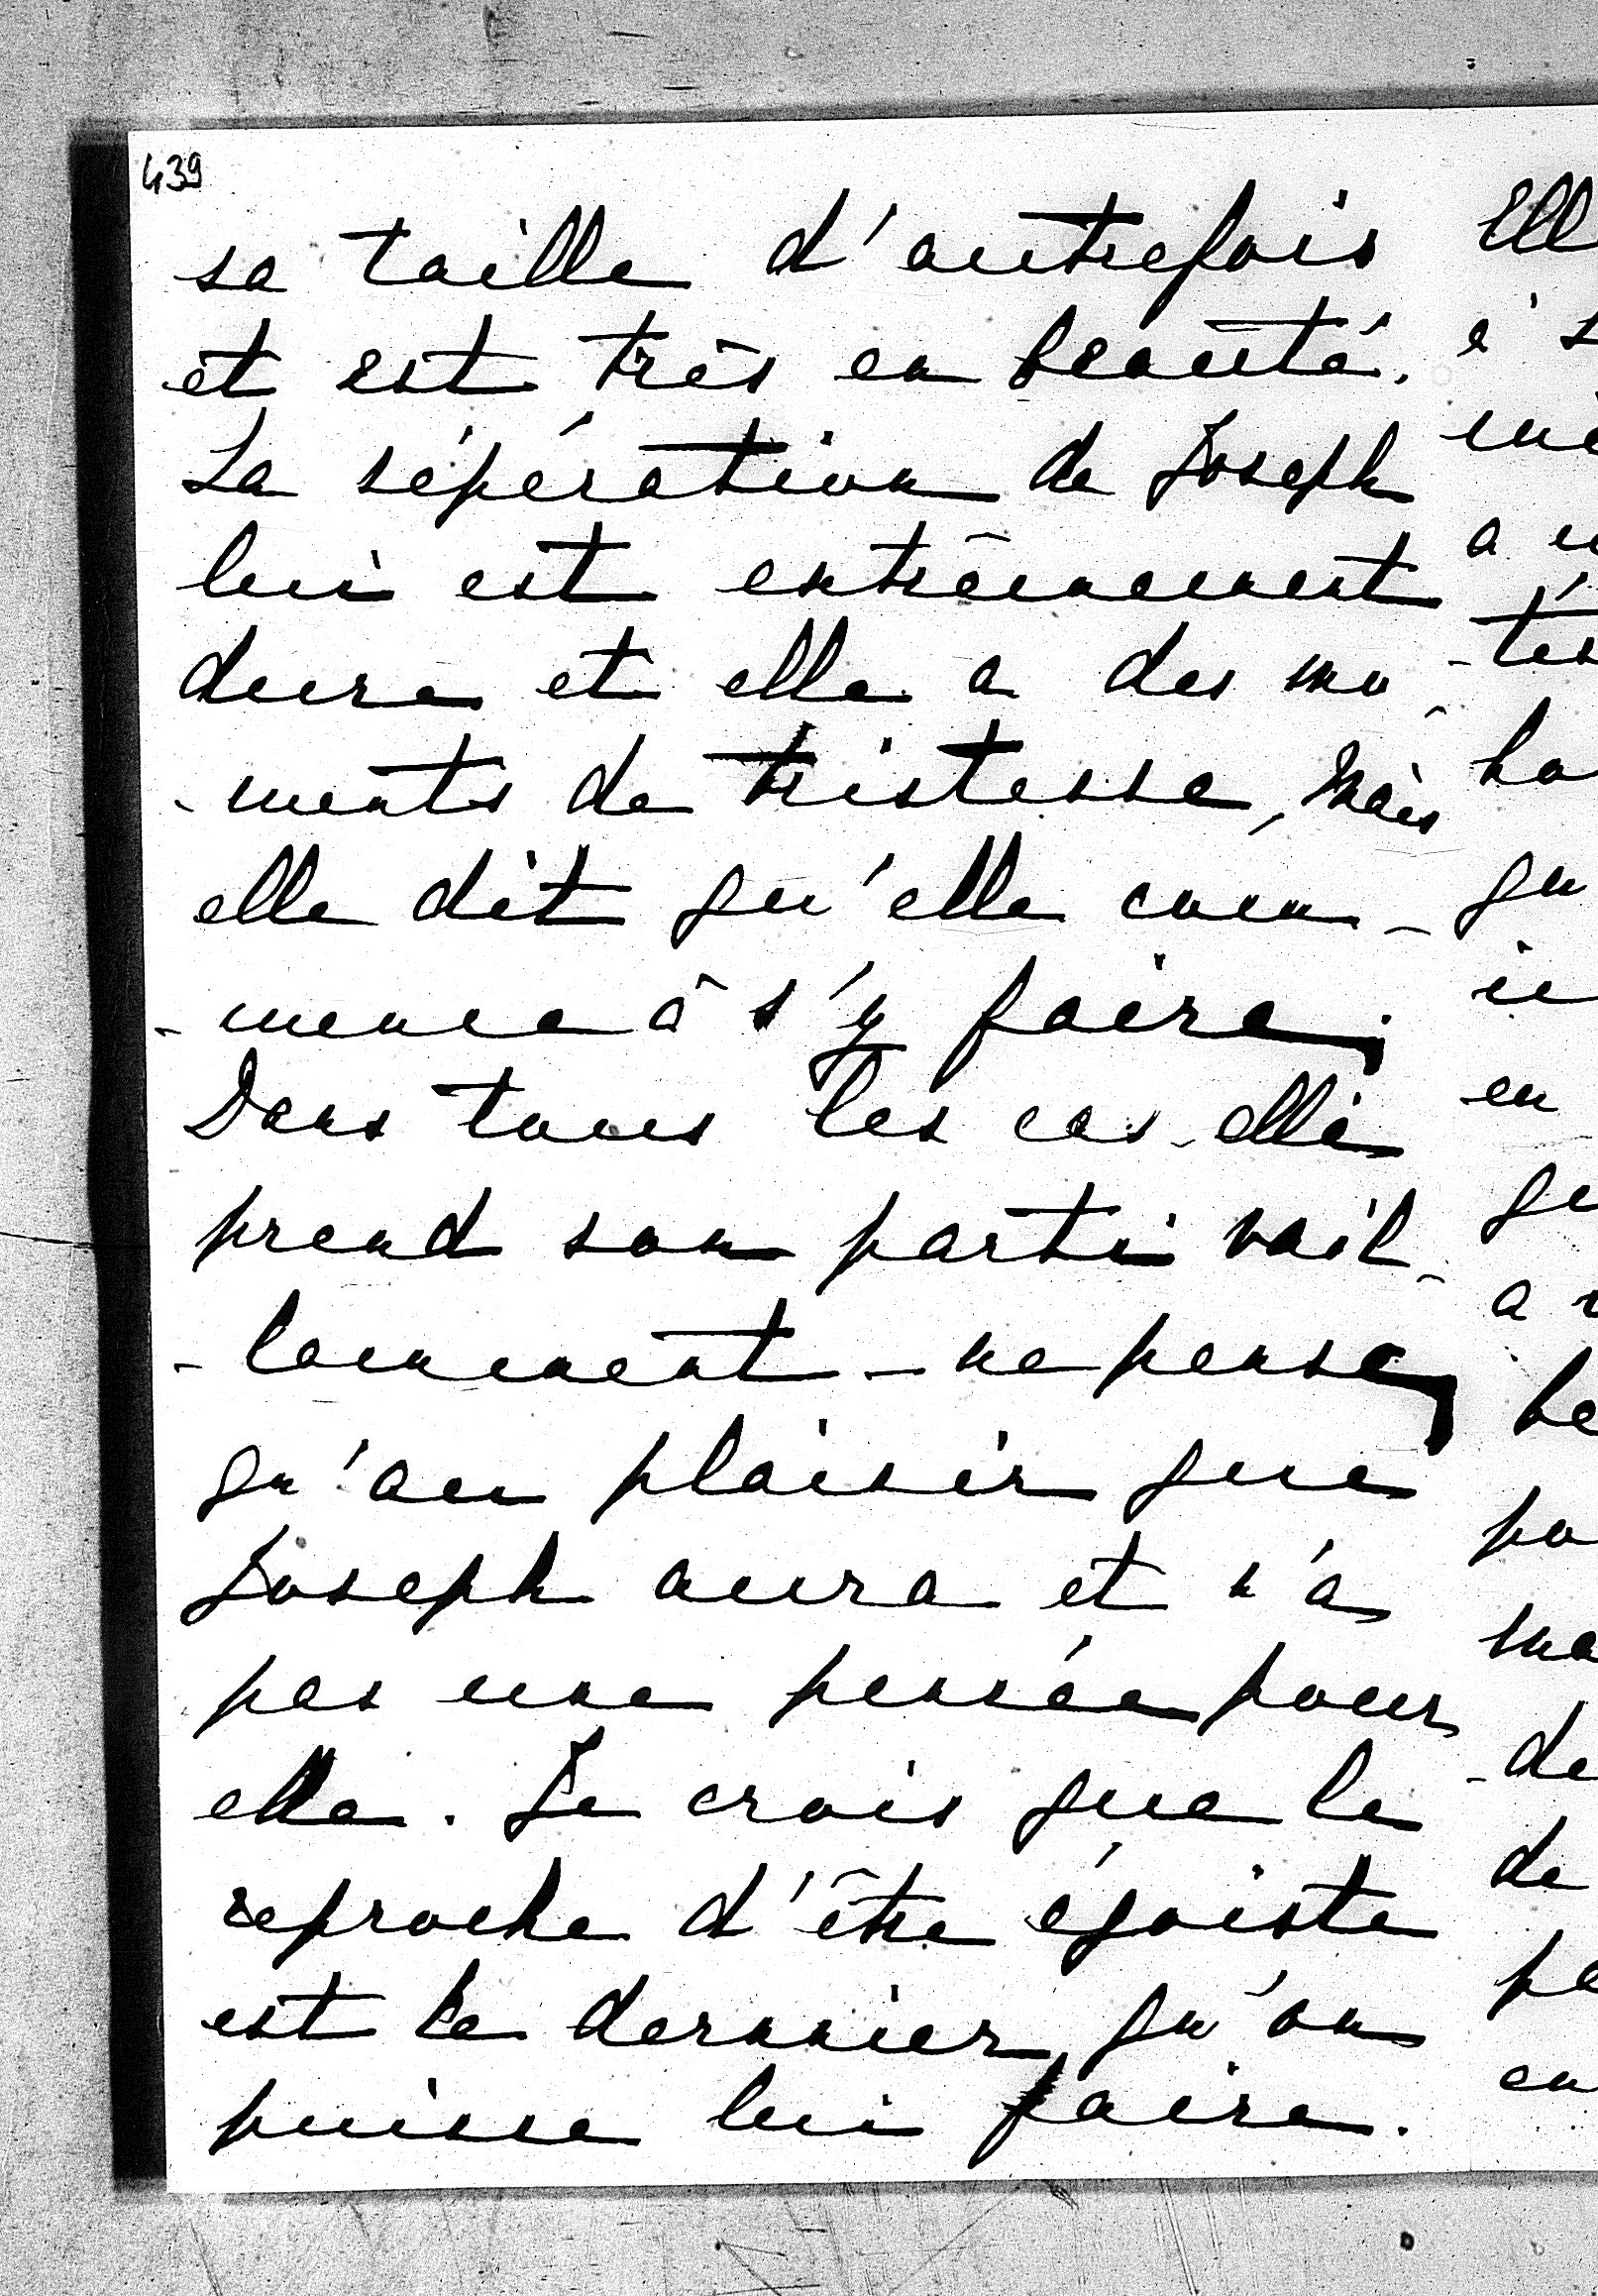 439
sa taille d'autrefois
et est très en beauté.
La séparation de Joseph
lui est extrêmement
dure et elle a des mo
-ments de tristesse, mais
elle dit qu'elle com-
-mence à s'y faire;
Dans tous les cas elle
prend son parti vail-
-lamment - ne pense,
qu'au plaisir que
Joseph aura et n'a
pas une pensée pour
elle. Je crois que le
reproche d'être égoiste
est le dernier qu'on
puisse lui faire.